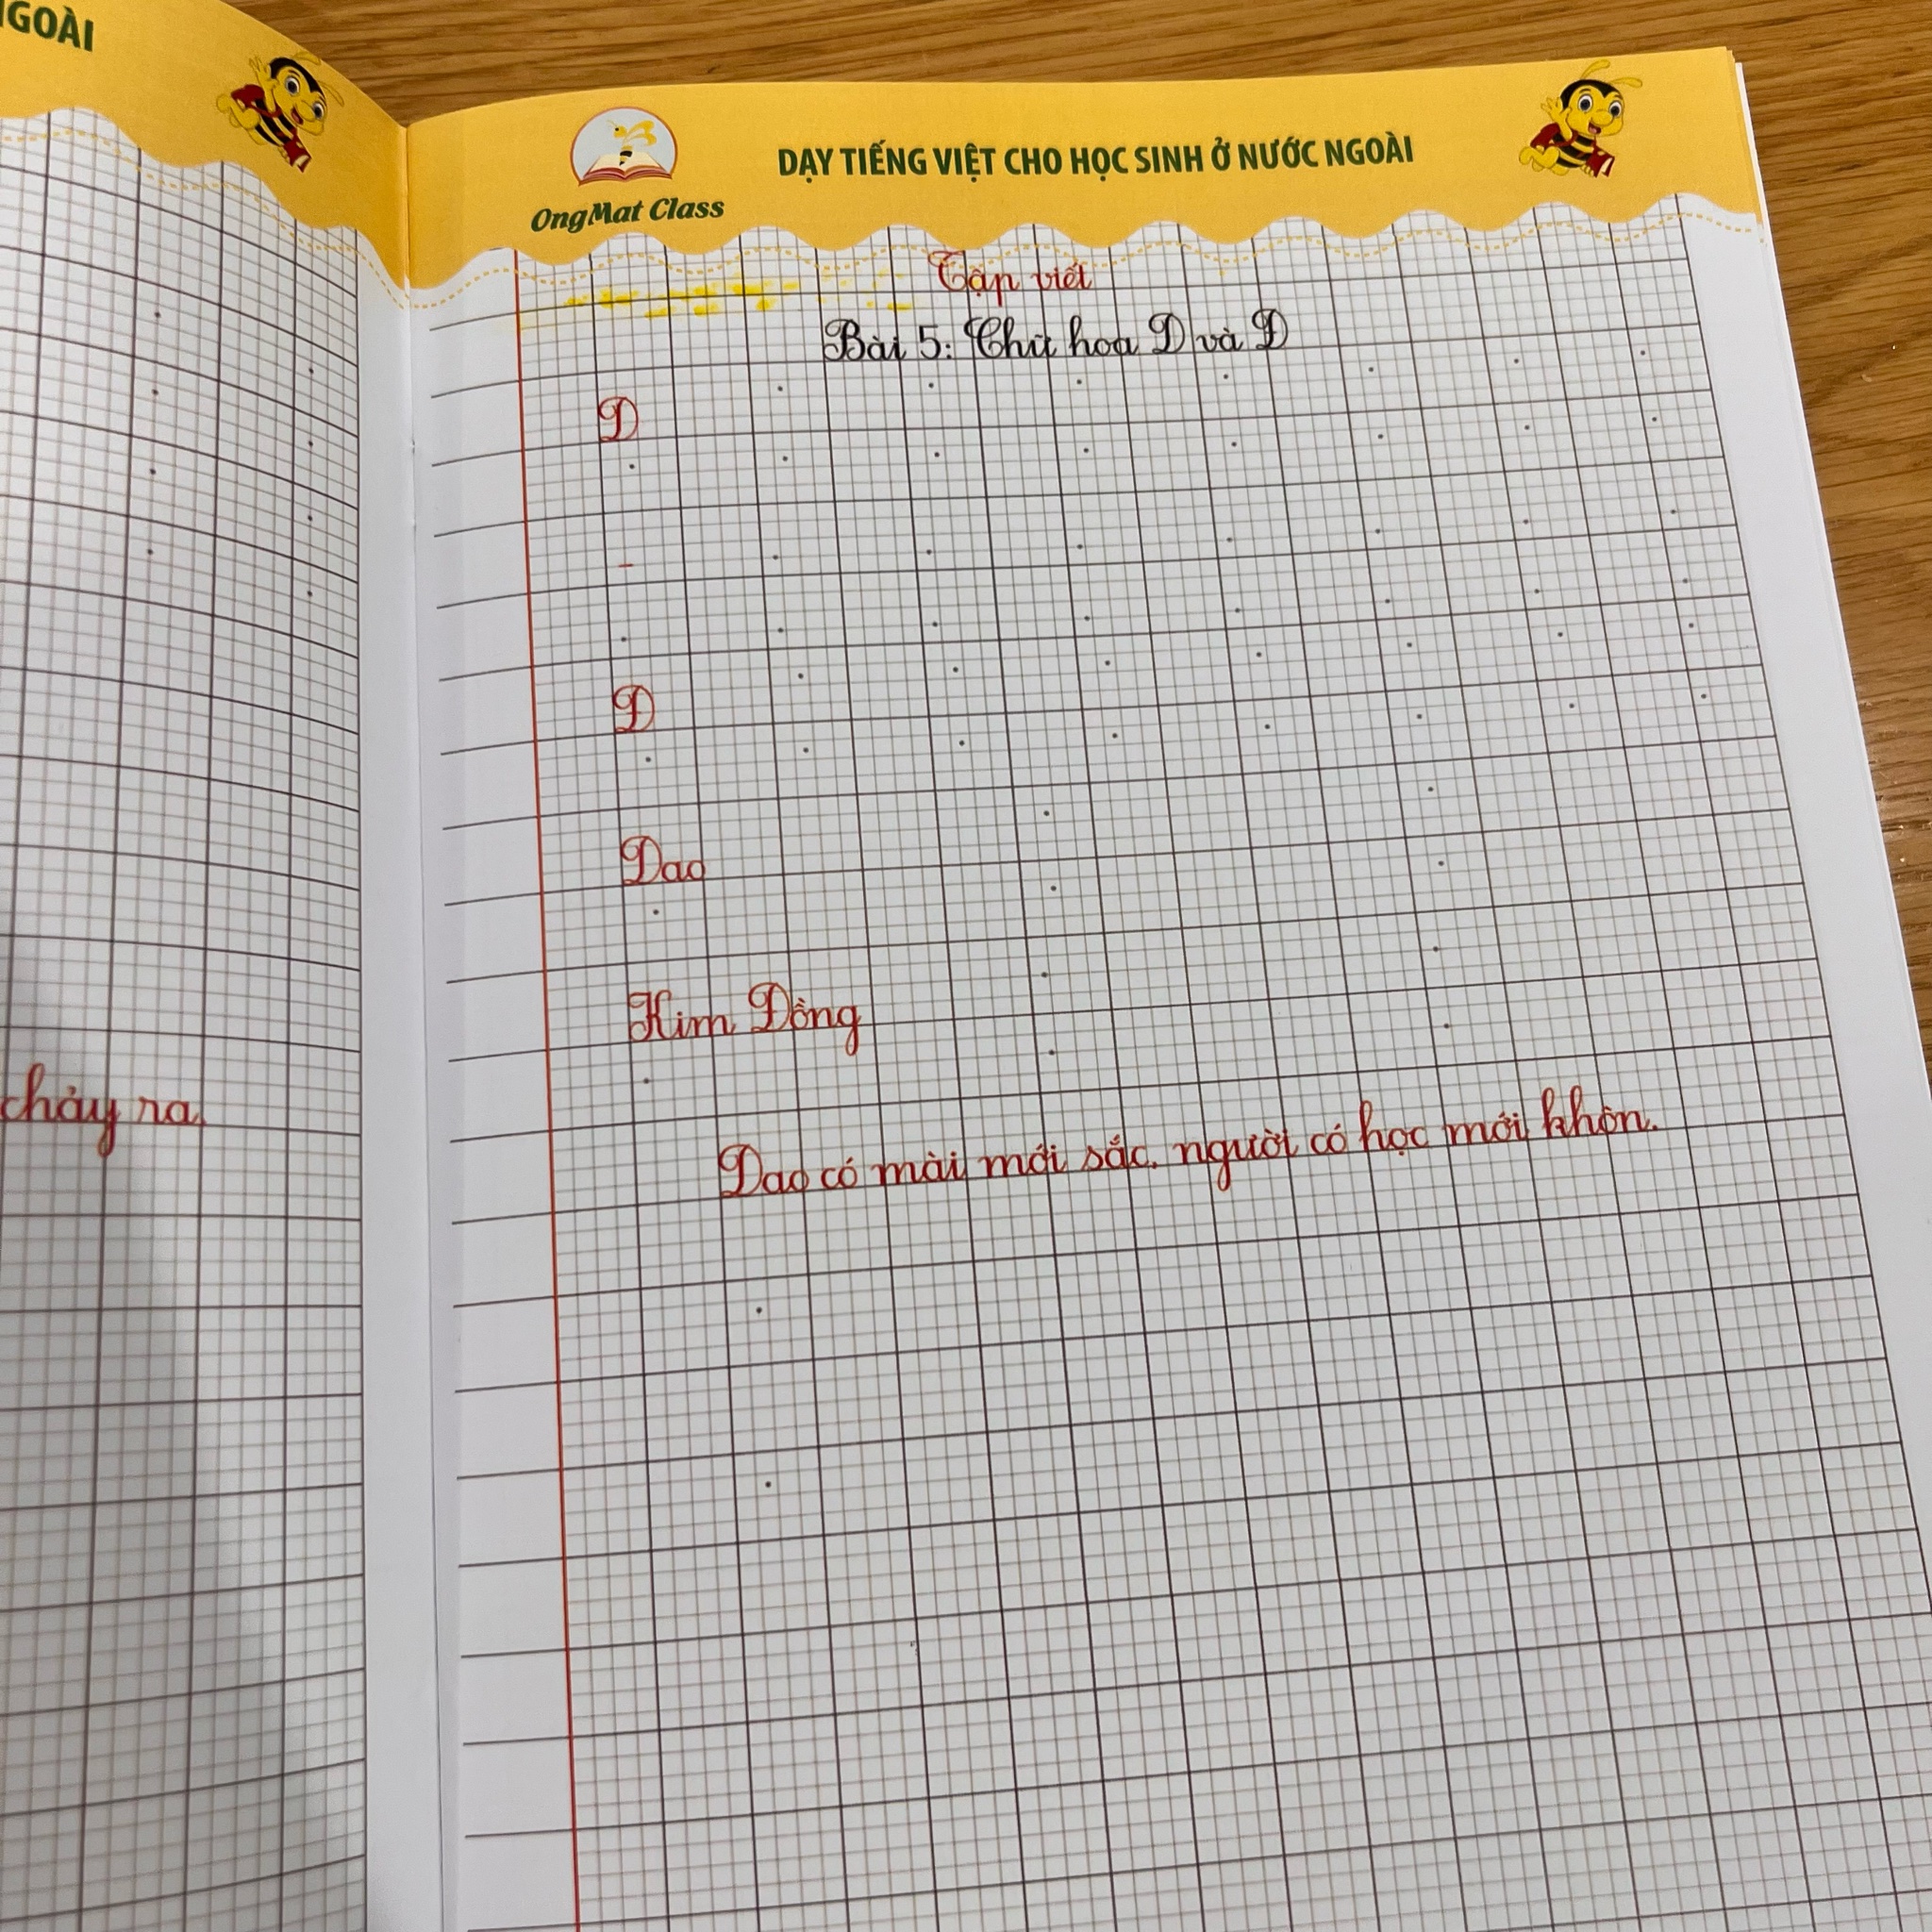 GOÀI
chảy ra
OngMat Class
DẠY TIẾNG VIỆT CHO HỌC SINH Ở NƯỚC NGOÀI
Tập viết
Bài 5: Chữ hoa D và Đ
D
-
Đ
Dao
Kim Đồng
Dao có mài mới sắc, người có học mới khôn.